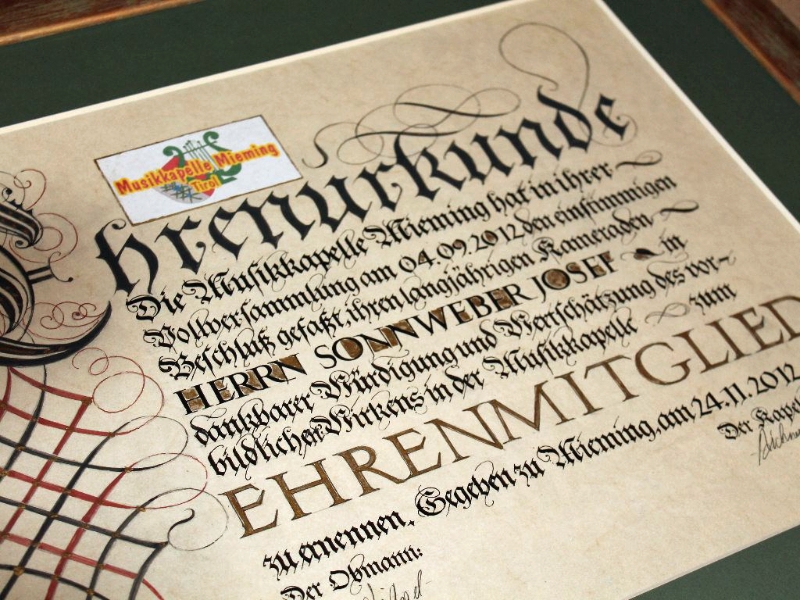 Musikkapelle Mieming
Tirol
Ehrenurkunde
Die Musikkapelle Mieming hat in ihrer
Vollversammlung am 04.09.2012 den einstimmigen
Beschluß gefaßt, ihren langjährigen Kameraden
HERRN SONNWEBER JOSEF in
dankbarer Würdigung und Wertschätzung des vor-
bildlichen Wirkens in der Musikkapelle zum
EHRENMITGLIED
zu ernennen. Gegeben zu Mieming, am 24.11.2012
Der Obmann: Der Kapel